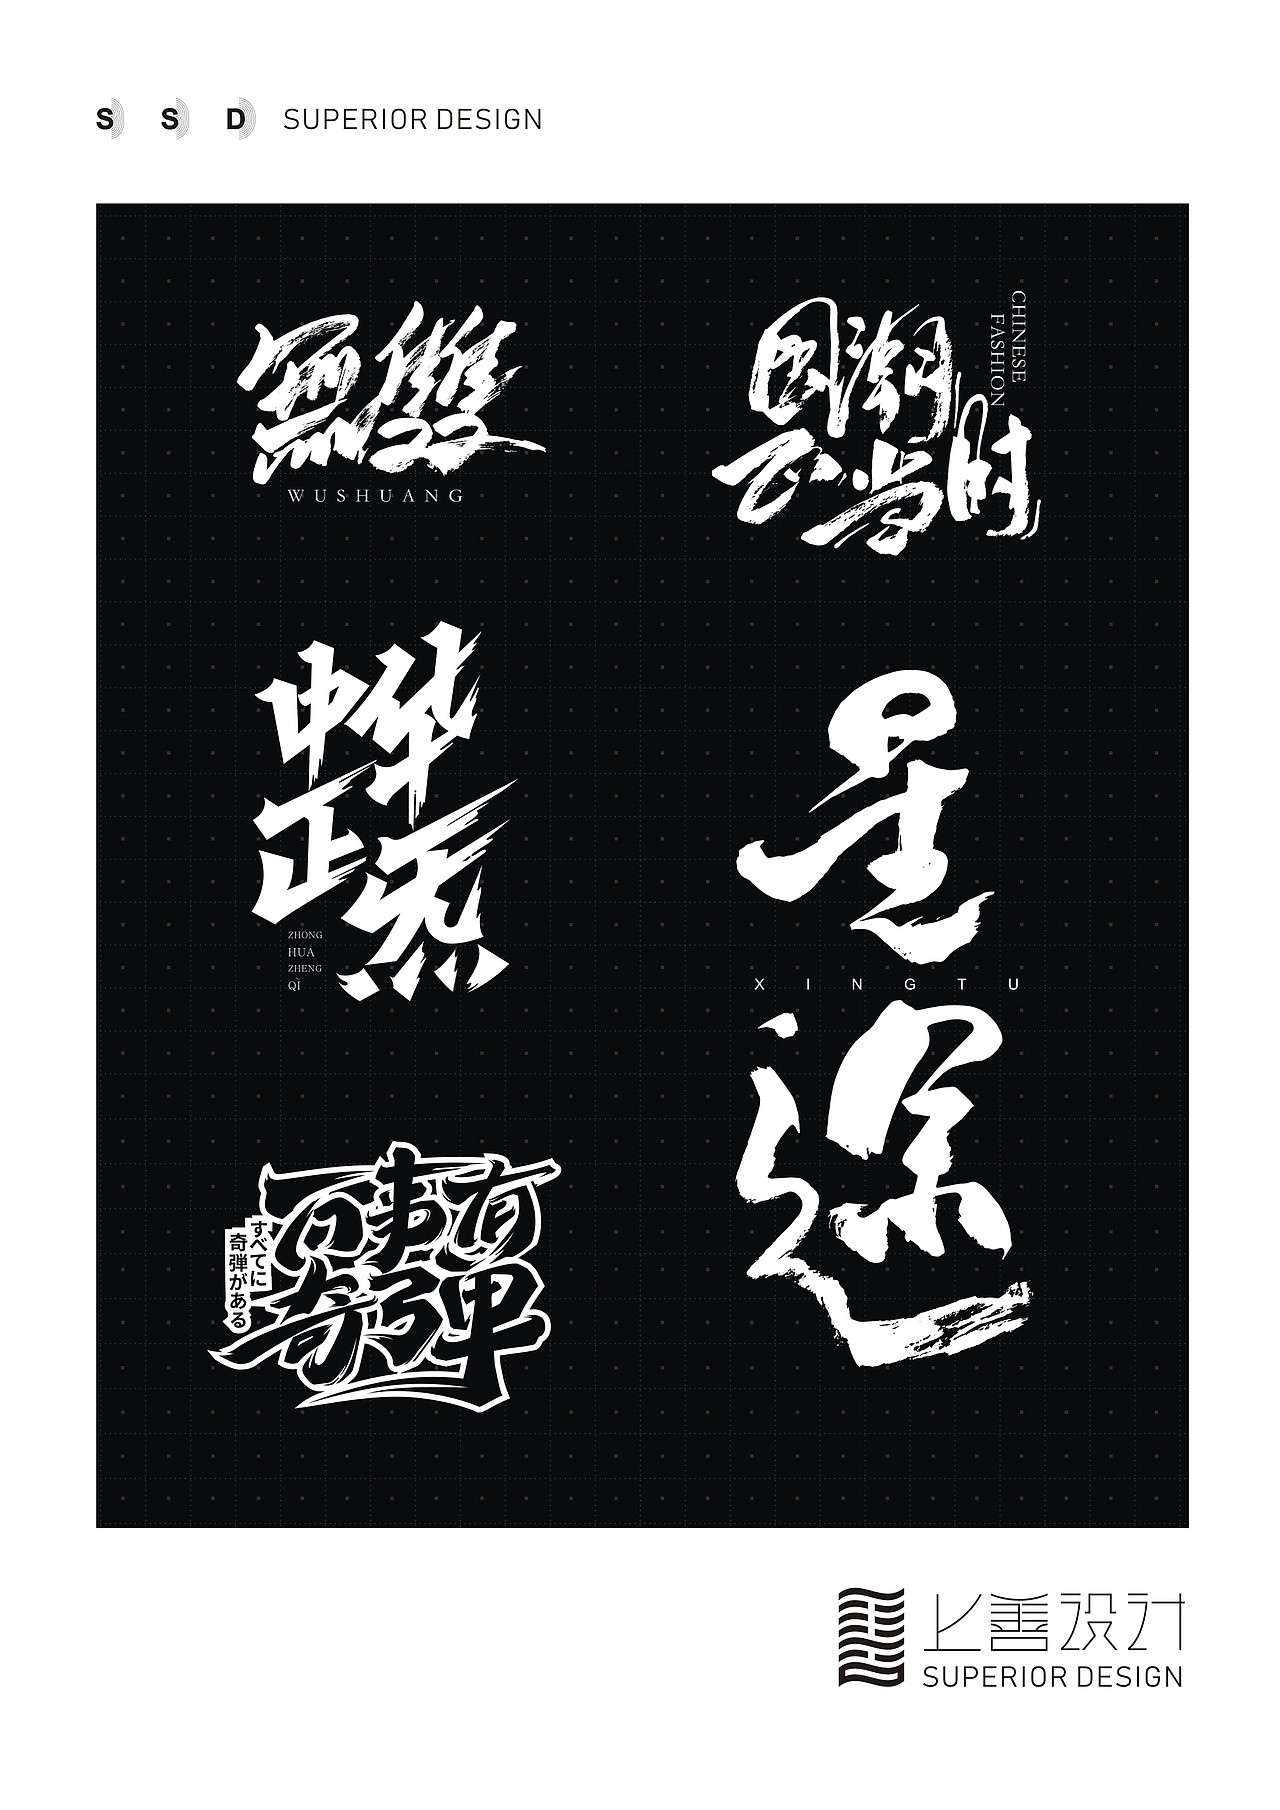 S S D SUPERIOR DESIGN
無雙
WUSHUANG
国潮
正当时
CHINESE
FASHION
中华
正炁
ZHONG
HUA
ZHENG
QÌ
星
XINGTU
途
万事有
奇弹
すべてに
奇弾がある
上善设计
SUPERIOR DESIGN